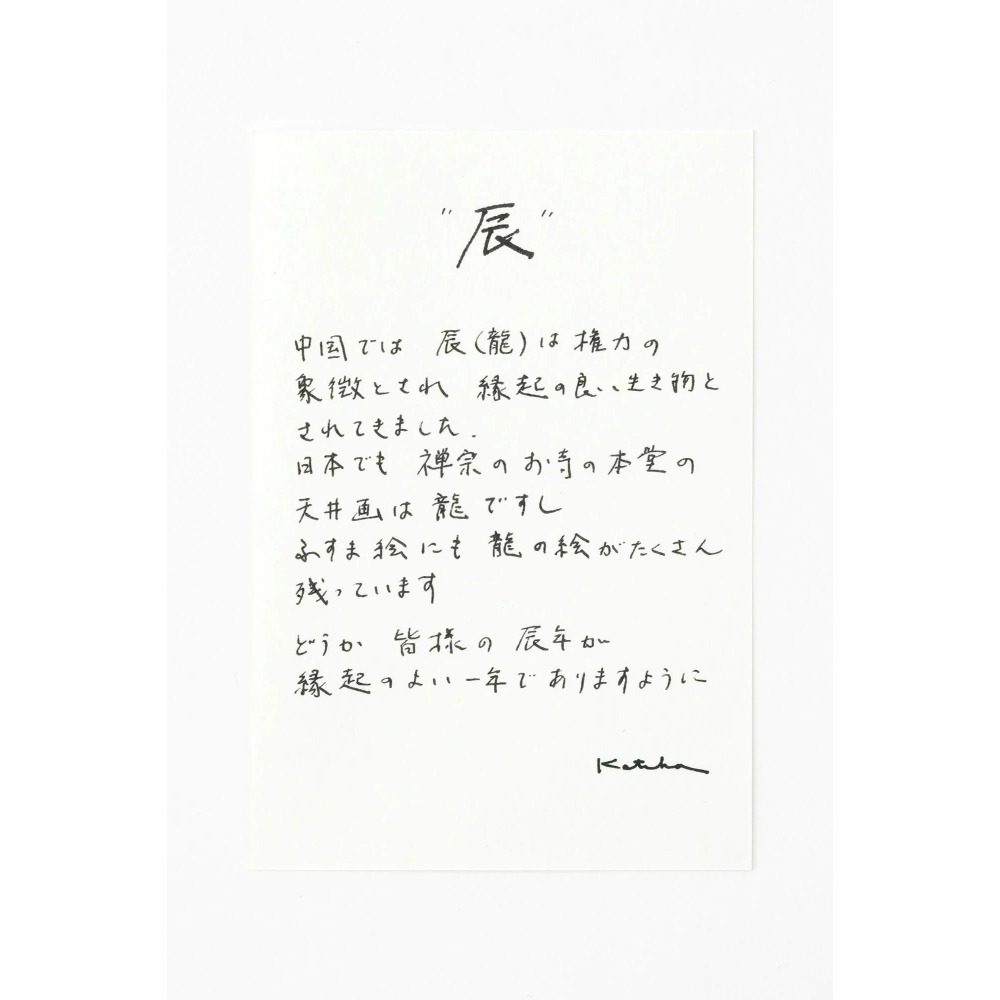 "辰"
中国では 辰(龍)は権力の
象徴とされ 縁起の良い生き物と
されてきました.
日本でも 禅宗のお寺の本堂の
天井画は龍ですし
ふすま絵にも 龍の絵がたくさん
残っています
どうか 皆様の辰年が
縁起のよい一年でありますように